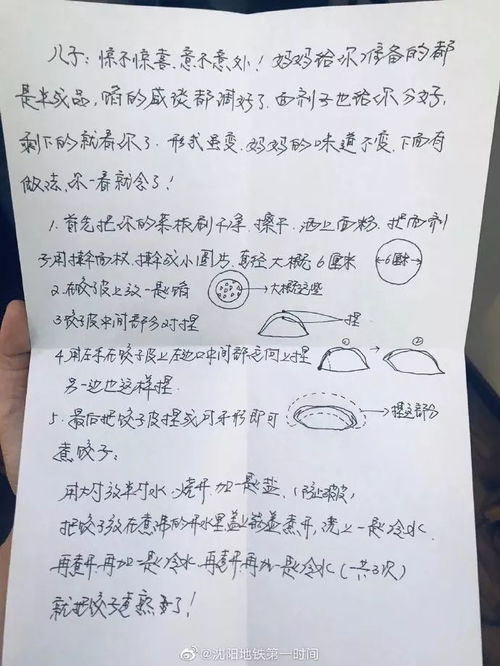 儿子：惊不惊喜、意不意外！妈妈给你准备的都
是半成品，馅的咸淡都调好了，面剂子也给你分好，
剩下的就看你了．形式虽变，妈妈的味道不变．下面有
做法，你一看就会了！
1．首先把你的菜板刷干净、擦干、洒上面粉，把面剂
子用擀面杖，擀成小圆片，直径大概6厘米
←6厘米→
2．在饺子皮上放一些馅
大概这些
3饺子皮中间部分对捏
捏
4．用左手在饺子皮上左边口中间部向上捏
① ②
另一边也这样捏．
5．最后把饺子皮捏成月牙形即可
捏这部分
煮饺子：
用大勺放半勺水、烧开、加一些盐，（防止破皮）
把饺子放在煮沸的开水里盖上锅盖煮开，浇上一些冷水．
再煮开、再加一些冷水、再煮开再加一些冷水（一共3次）
就把饺子煮熟了！
@沈阳地铁第一时间